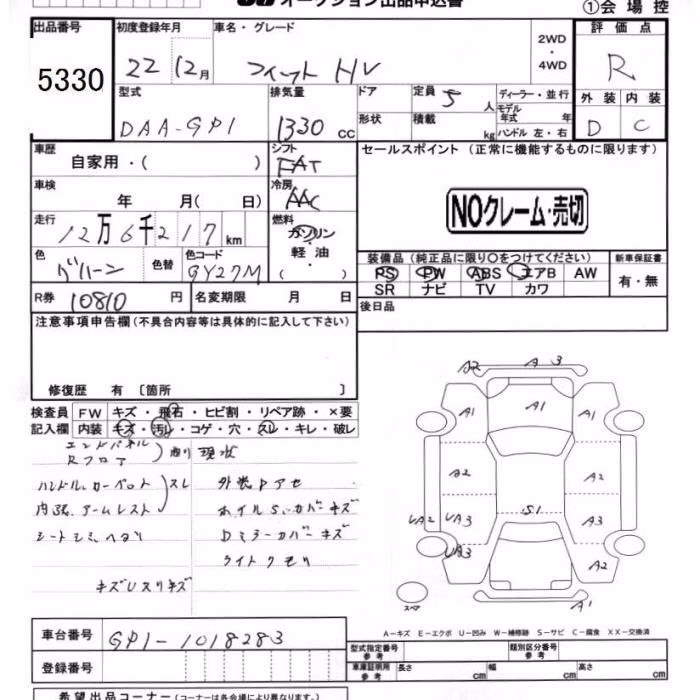 オークション出品申込書
①会場控
出品番号 初度登録年月 車名・グレード 評価点
5330 22 12月 フィット HV 2WD・4WD R
型式 排気量 ドア 定員 5 人 ディーラー・並行 外装 内装
DAA-GP1 1330 cc 形状 積載 kg モデル年式 年 ハンドル 左・右 D C
車歴 自家用・( ) シフト FAT セールスポイント (正常に機能するものに限ります)
車検 年 月( 日) 冷房 AAC
NOクレーム・売切
走行 12万6千217km 燃料 ガソリン・軽油・( )
色 グリーン 色替 色コード GY27M
装備品(純正品に限り○をつけてください) 新車保証書
PS PW ABS エアB AW 有・無
SR ナビ TV カワ
R券 10810 円 名変期限 月 日 後日品
注意事項申告欄(不具合内容等は具体的に記入して下さい)
修復歴 有〔箇所 〕
検査員 FW キズ・飛石・ヒビ割・リペア跡・×要
記入欄 内装 キズ・汚レ・コゲ・穴・スレ・キレ・破レ
エンドパネル
Rフロア
現状
ハンドル、カーペット スレ 外装Pアセ
内張、アームレスト ホイルS、カバーキズ
シートシミ、ヘタリ Dミラーカバーキズ
ライトクモリ
キズUスリキズ
A2 A3
A1 A1 A1
A2 A2
UA2 UA3 S1 A3
UA3 A2
スペア A1
A-キズ E-エクボ U-凹み W-補修跡 S-サビ C-腐食 XX-交換済
車台番号 GP1-1018283
型式指定番号 参考 類別区分番号 参考
登録番号 車庫証明用 参考 長さ cm 幅 cm 高さ cm
希望出品コーナー(コーナーは各会場により異なります。)